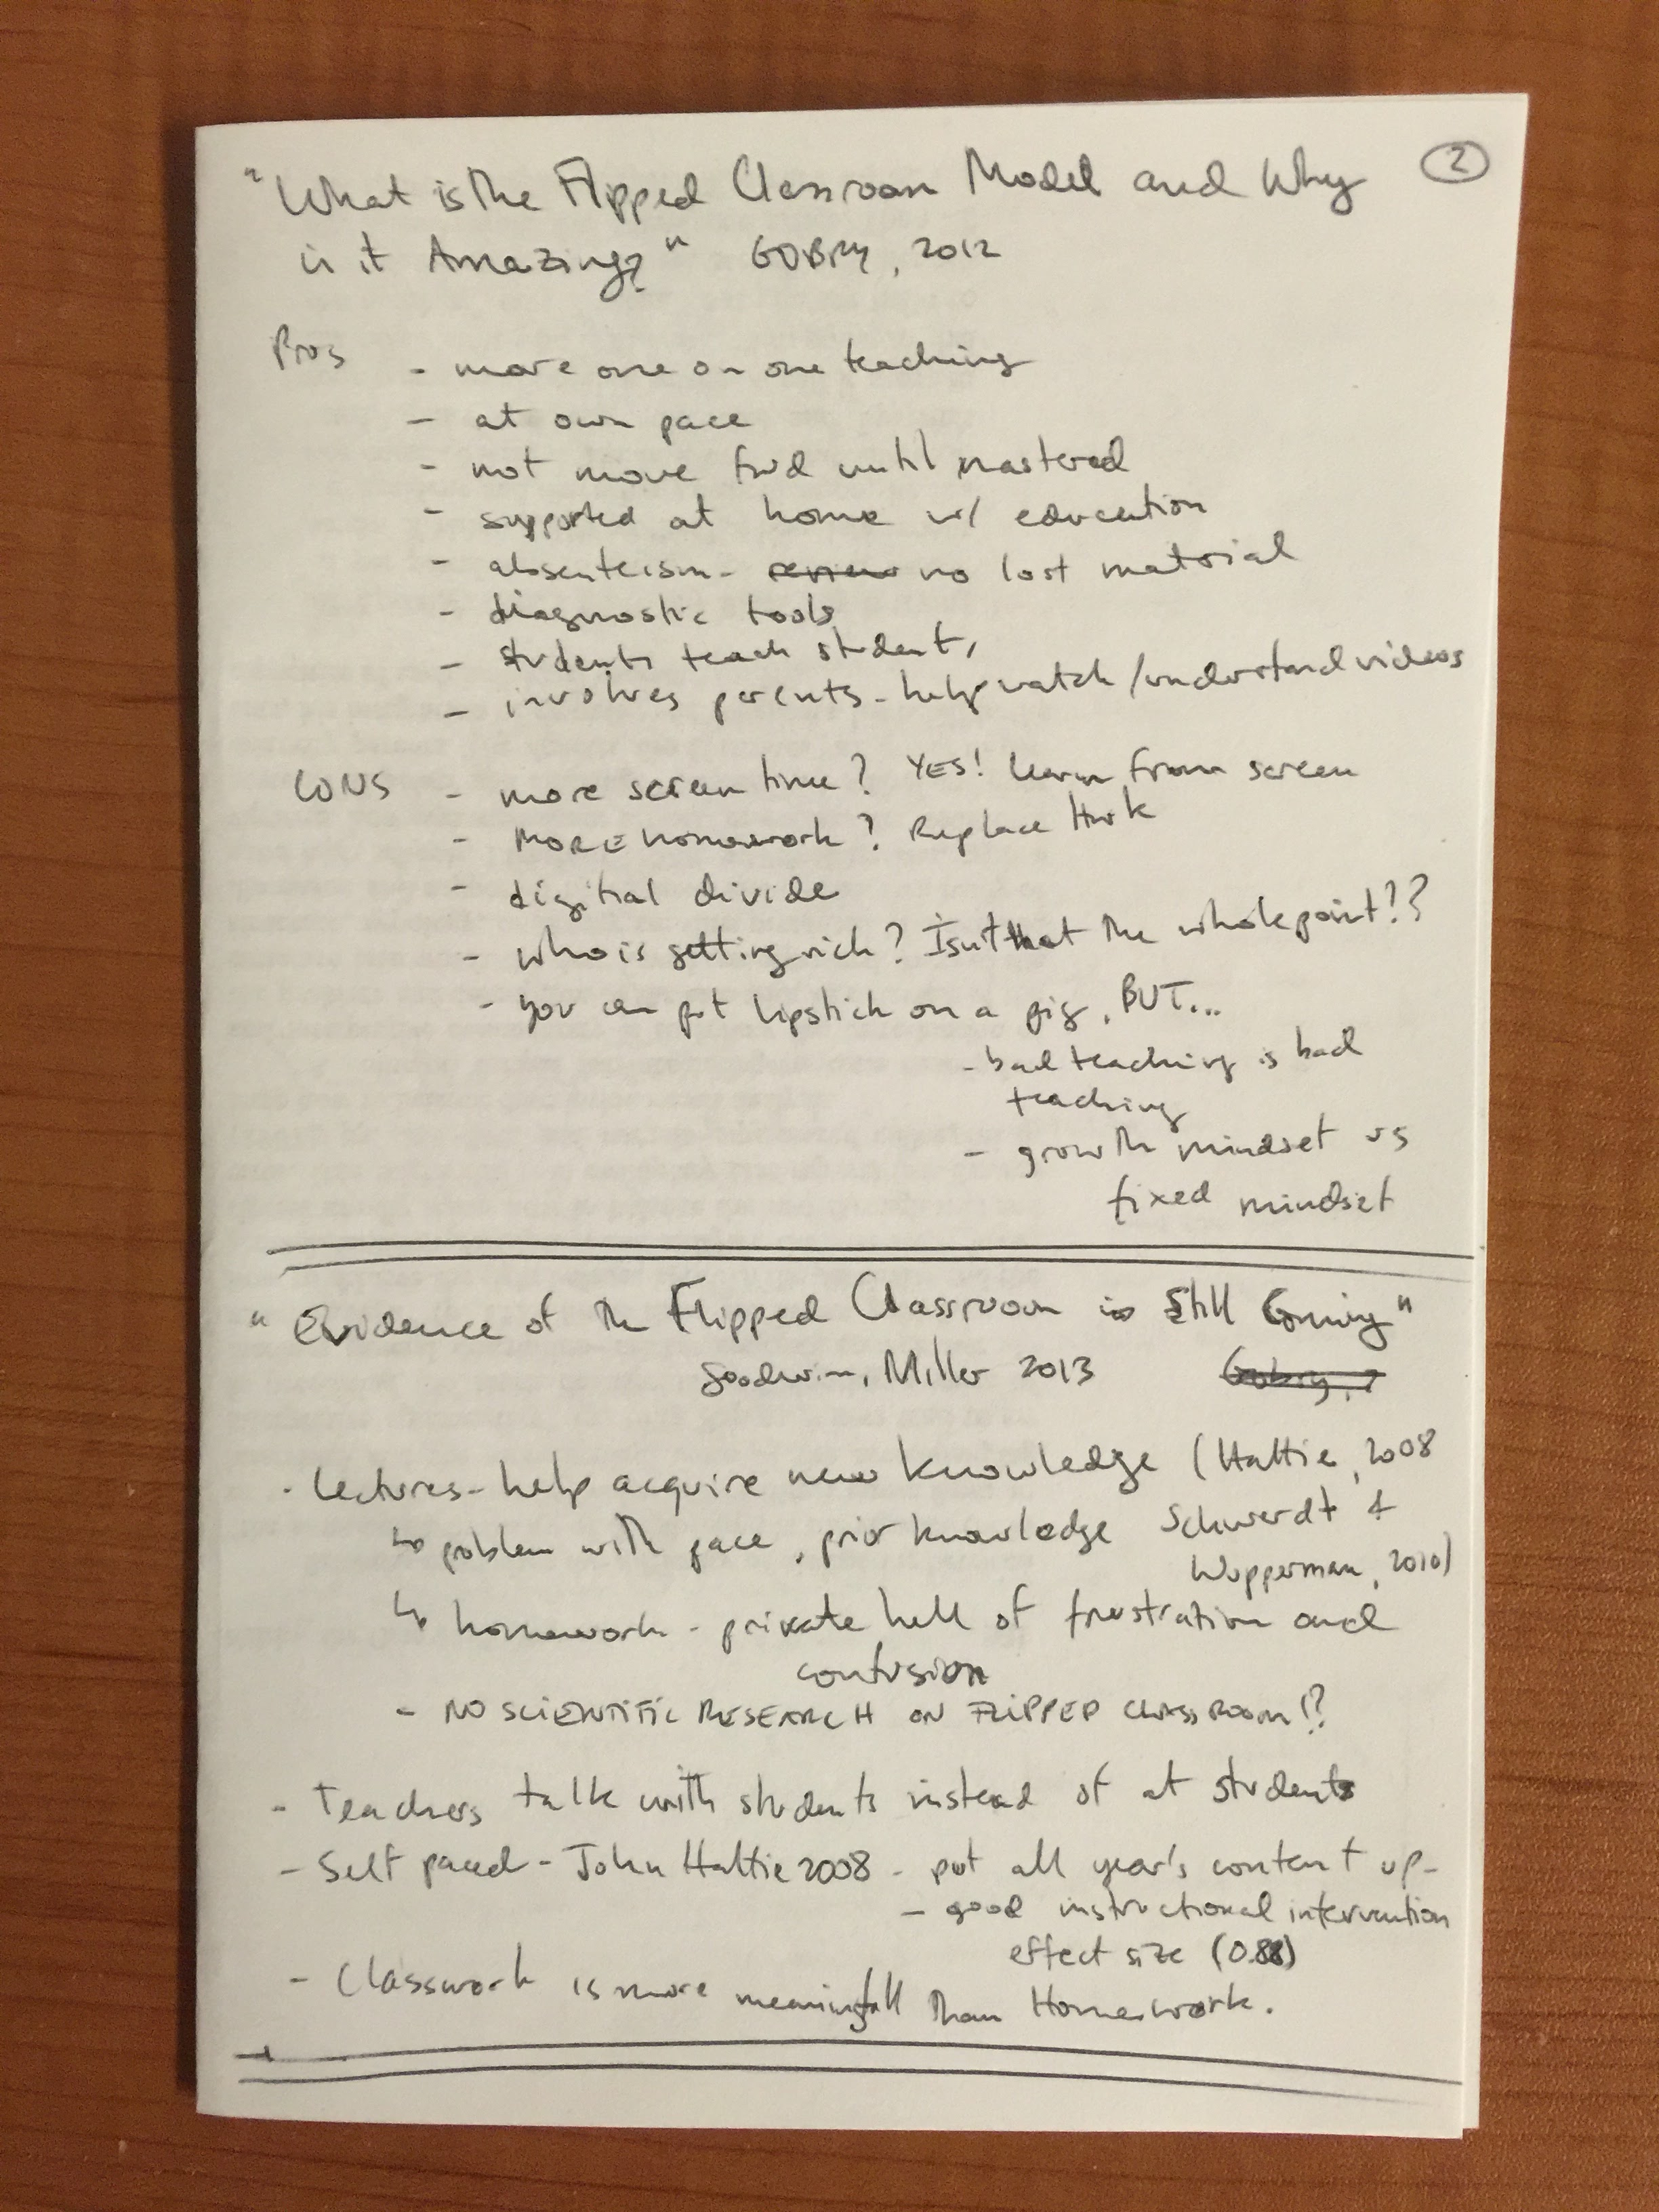 "What is the Flipped Classroom Model and Why 2
is it Amazing?" GOBRY, 2012
Pros - more one on one teaching
- at own pace
- not move fwd until mastered
- supported at home w/ education
- absenteeism - review no lost material
- diagnostic tools
- students teach students
- involves parents - help watch/understand videos
CONS - more screen time? YES! learn from screen
- MORE homework? Replace Hwk
- digital divide
- who is getting rich? Isn't that the whole point!?
- you can put lipstick on a pig, BUT...
- bad teaching is bad
teaching
- growth mindset vs
fixed mindset
"Evidence of the Flipped Classroom is Still Coming"
Goodwin, Miller 2013 Gobry, ?
- Lectures - help acquire new knowledge (Hattie, 2008
↳ problem with pace, prior knowledge Schwerdt &
Wupperman, 2010)
↳ homework - private hell of frustration and
confusion
- NO SCIENTIFIC RESEARCH ON FLIPPED CLASSROOM!?
- Teachers talk with students instead of at students
- Self paced - John Hattie 2008 - put all year's content up -
- good instructional intervention
effect size (0.88)
- Classwork is more meaningful than Homework.